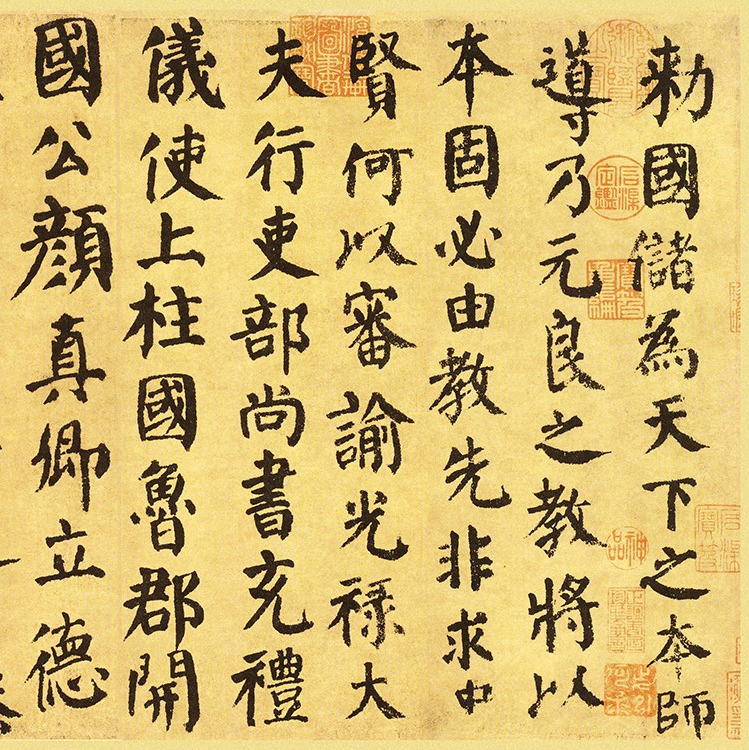 勑國儲為天下之本師
導乃元良之教將以
本固必由教先非求中
賢何以審諭光祿大
夫行吏部尚書充禮
儀使上柱國魯郡開
國公顏真卿立德
神品